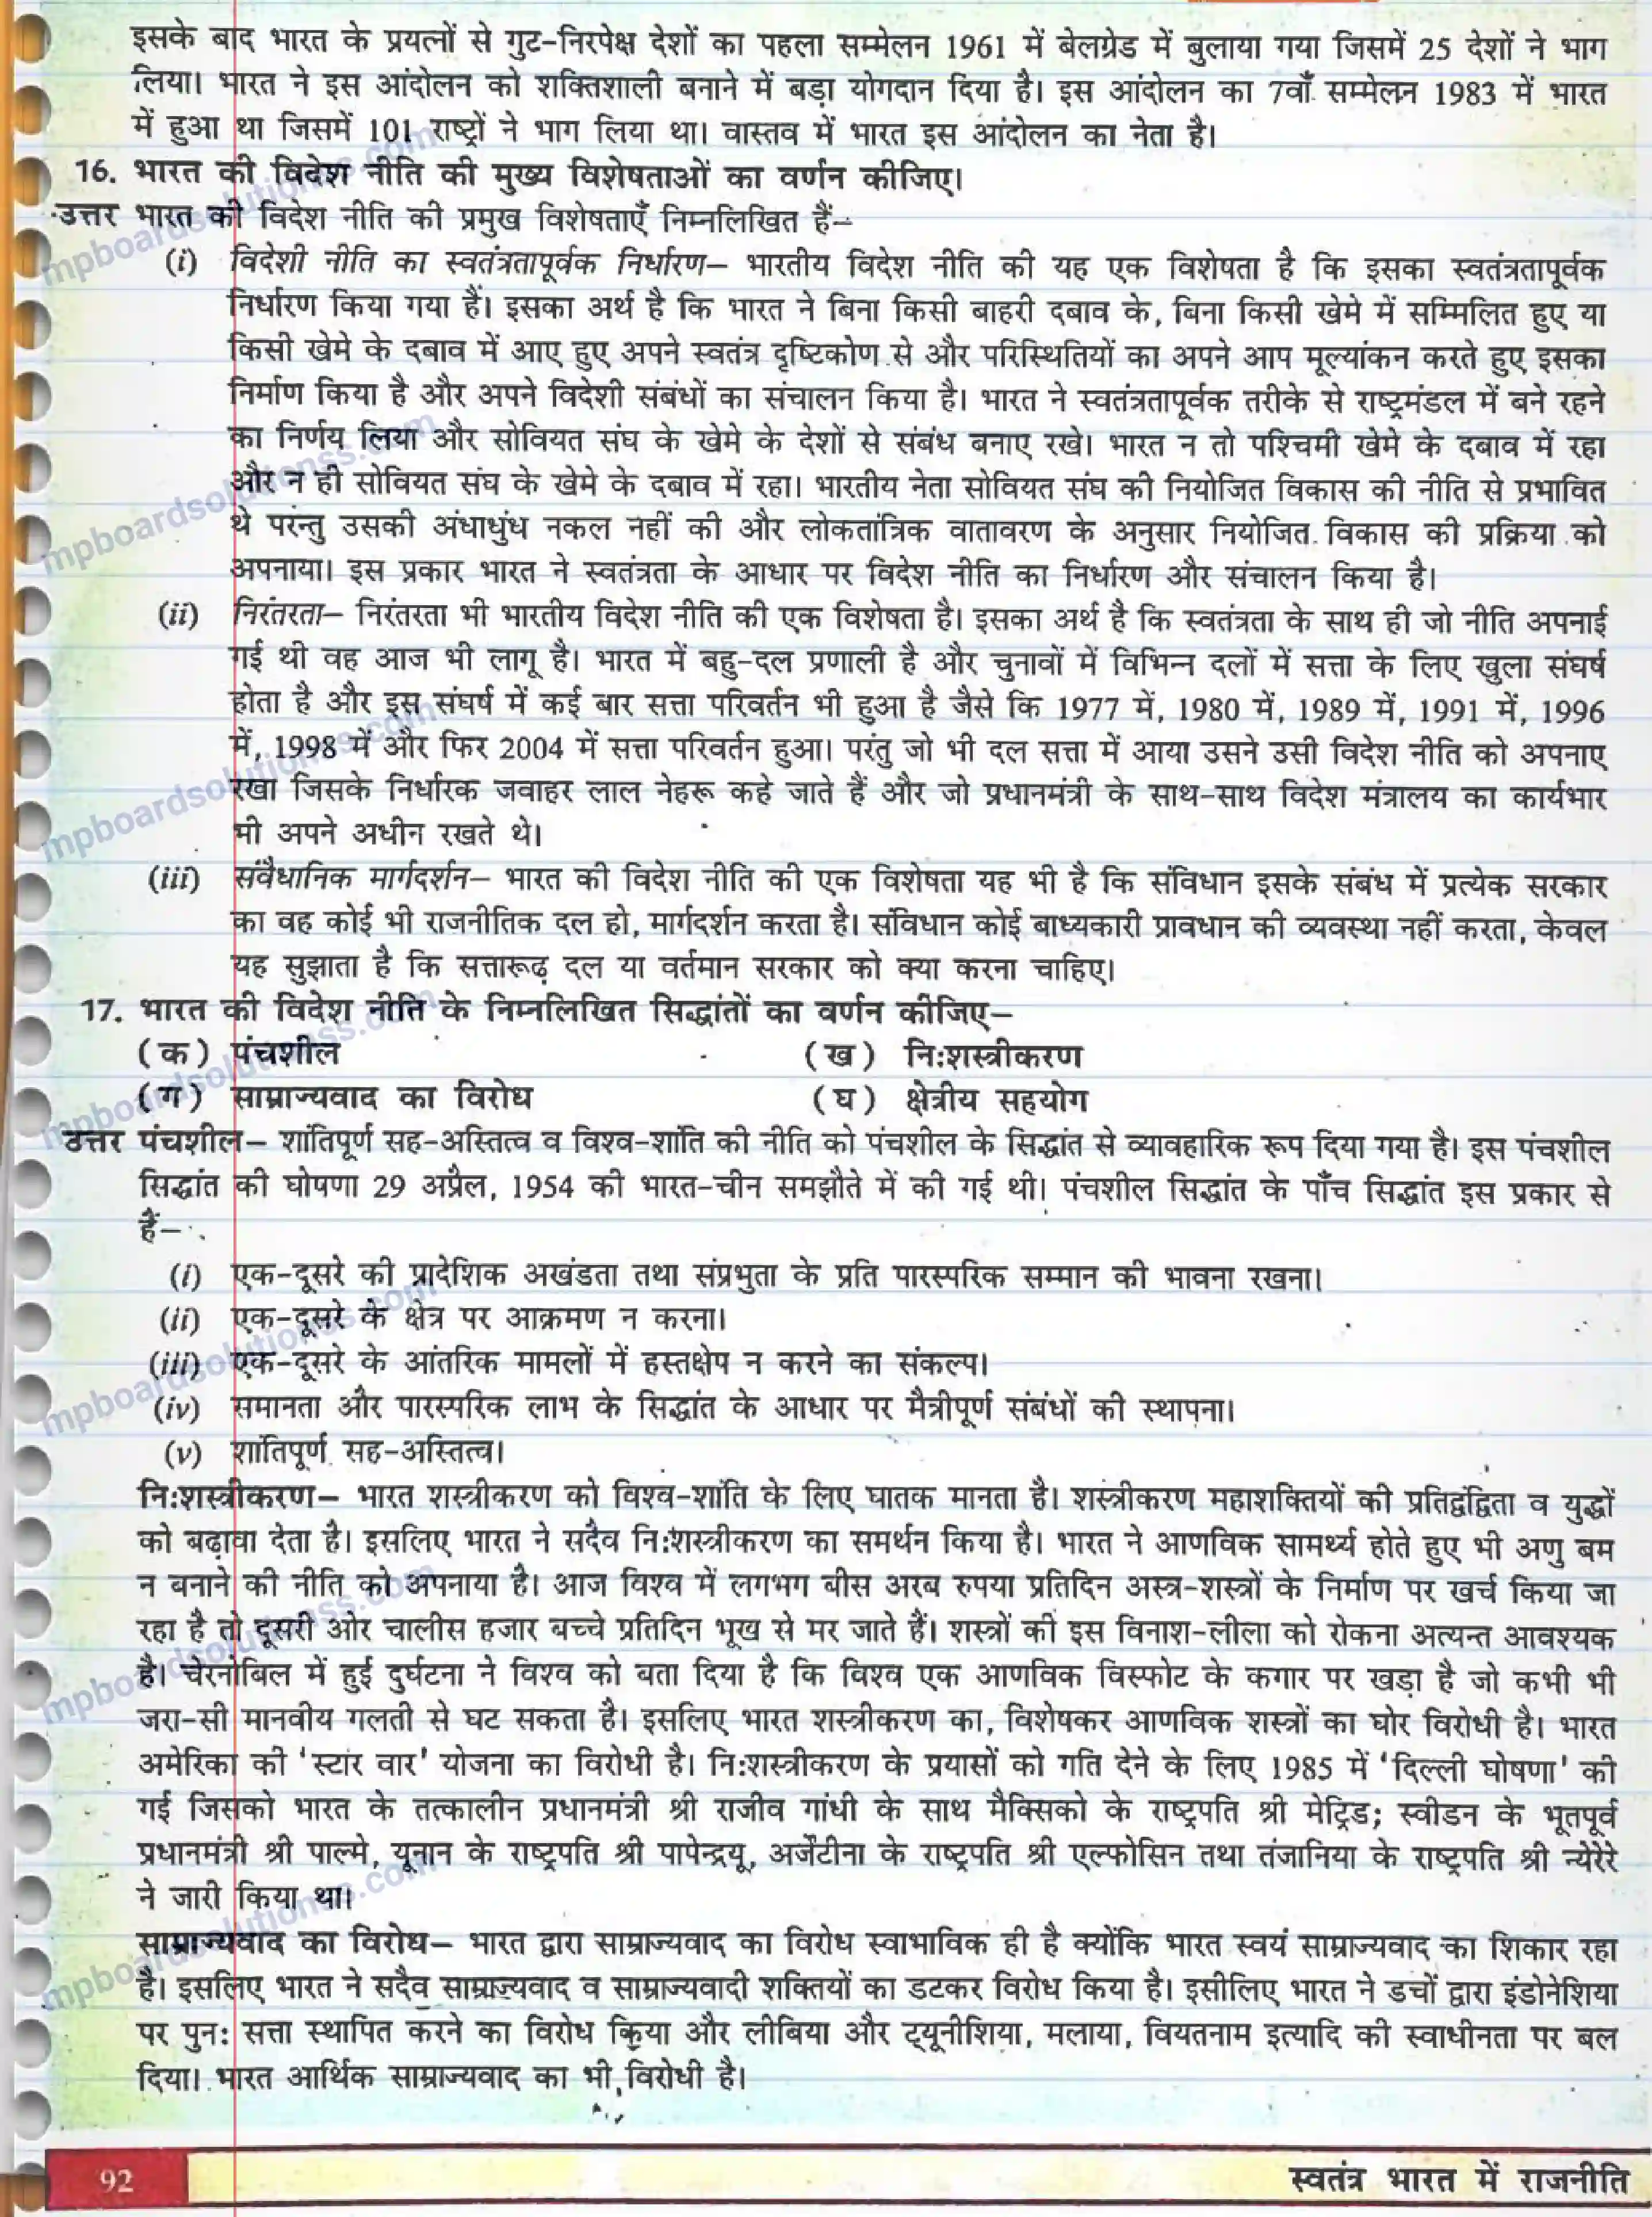 इसके बाद भारत के प्रयत्नों से गुट-निरपेक्ष देशों का पहला सम्मेलन 1961 में बेलग्रेड में बुलाया गया जिसमें 25 देशों ने भाग
लिया। भारत ने इस आंदोलन को शक्तिशाली बनाने में बड़ा योगदान दिया है। इस आंदोलन का 7वाँ सम्मेलन 1983 में भारत
में हुआ था जिसमें 101 राष्ट्रों ने भाग लिया था। वास्तव में भारत इस आंदोलन का नेता है।
16. भारत की विदेश नीति की मुख्य विशेषताओं का वर्णन कीजिए।
उत्तर भारत की विदेश नीति की प्रमुख विशेषताएँ निम्नलिखित हैं–
(i) विदेशी नीति का स्वतंत्रतापूर्वक निर्धारण– भारतीय विदेश नीति की यह एक विशेषता है कि इसका स्वतंत्रतापूर्वक
निर्धारण किया गया हैं। इसका अर्थ है कि भारत ने बिना किसी बाहरी दबाव के, बिना किसी खेमे में सम्मिलित हुए या
किसी खेमे के दबाव में आए हुए अपने स्वतंत्र दृष्टिकोण से और परिस्थितियों का अपने आप मूल्यांकन करते हुए इसका
निर्माण किया है और अपने विदेशी संबंधों का संचालन किया है। भारत ने स्वतंत्रतापूर्वक तरीके से राष्ट्रमंडल में बने रहने
का निर्णय लिया और सोवियत संघ के खेमे के देशों से संबंध बनाए रखे। भारत न तो पश्चिमी खेमे के दबाव में रहा
और न ही सोवियत संघ के खेमे के दबाव में रहा। भारतीय नेता सोवियत संघ की नियोजित विकास की नीति से प्रभावित
थे परंन्तु उसकी अंधाधुंध नकल नहीं की और लोकतांत्रिक वातावरण के अनुसार नियोजित विकास की प्रक्रिया को
अपनाया। इस प्रकार भारत ने स्वतंत्रता के आधार पर विदेश नीति का निर्धारण और संचालन किया है।
(ii) निरंतरता– निरंतरता भी भारतीय विदेश नीति की एक विशेषता है। इसका अर्थ है कि स्वतंत्रता के साथ ही जो नीति अपनाई
गई थी वह आज भी लागू है। भारत में बहु-दल प्रणाली है और चुनावों में विभिन्न दलों में सत्ता के लिए खुला संघर्ष
होता है और इस संघर्ष में कई बार सत्ता परिवर्तन भी हुआ है जैसे कि 1977 में, 1980 में, 1989 में, 1991 में, 1996
में, 1998 में और फिर 2004 में सत्ता परिवर्तन हुआ। परंतु जो भी दल सत्ता में आया उसने उसी विदेश नीति को अपनाए
रखा जिसके निर्धारक जवाहर लाल नेहरू कहे जाते हैं और जो प्रधानमंत्री के साथ-साथ विदेश मंत्रालय का कार्यभार
भी अपने अधीन रखते थे।
(iii) संवैधानिक मार्गदर्शन– भारत की विदेश नीति की एक विशेषता यह भी है कि संविधान इसके संबंध में प्रत्येक सरकार
का वह कोई भी राजनीतिक दल हो, मार्गदर्शन करता है। संविधान कोई बाध्यकारी प्रावधान की व्यवस्था नहीं करता, केवल
यह सुझाता है कि सत्तारूढ़ दल या वर्तमान सरकार को क्या करना चाहिए।
17. भारत की विदेश नीति के निम्नलिखित सिद्धांतों का वर्णन कीजिए–
(क) पंचशील (ख) नि:शस्त्रीकरण
(ग) साम्राज्यवाद का विरोध (घ) क्षेत्रीय सहयोग
उत्तर पंचशील– शांतिपूर्ण सह-अस्तित्व व विश्व-शांति की नीति को पंचशील के सिद्धांत से व्यावहारिक रूप दिया गया है। इस पंचशील
सिद्धांत की घोषणा 29 अप्रैल, 1954 की भारत-चीन समझौते में की गई थी। पंचशील सिद्धांत के पाँच सिद्धांत इस प्रकार से
हैं–
(i) एक-दूसरे की प्रादेशिक अखंडता तथा संप्रभुता के प्रति पारस्परिक सम्मान की भावना रखना।
(ii) एक-दूसरे के क्षेत्र पर आक्रमण न करना।
(iii) एक-दूसरे के आंतरिक मामलों में हस्तक्षेप न करने का संकल्प।
(iv) समानता और पारस्परिक लाभ के सिद्धांत के आधार पर मैत्रीपूर्ण संबंधों की स्थापना।
(v) शांतिपूर्ण सह-अस्तित्व।
नि:शस्त्रीकरण– भारत शस्त्रीकरण को विश्व-शांति के लिए घातक मानता है। शस्त्रीकरण महाशक्तियों की प्रतिद्वंद्विता व युद्धों
को बढ़ावा देता है। इसलिए भारत ने सदैव नि:शस्त्रीकरण का समर्थन किया है। भारत ने आणविक सामर्थ्य होते हुए भी अणु बम
न बनाने की नीति को अपनाया है। आज विश्व में लगभग बीस अरब रुपया प्रतिदिन अस्त्र-शस्त्रों के निर्माण पर खर्च किया जा
रहा है तो दूसरी ओर चालीस हजार बच्चे प्रतिदिन भूख से मर जाते हैं। शस्त्रों की इस विनाश-लीला को रोकना अत्यन्त आवश्यक
है। चेरनोबिल में हुई दुर्घटना ने विश्व को बता दिया है कि विश्व एक आणविक विस्फोट के कगार पर खड़ा है जो कभी भी
जरा-सी मानवीय गलती से घट सकता है। इसलिए भारत शस्त्रीकरण का, विशेषकर आणविक शस्त्रों का घोर विरोधी है। भारत
अमेरिका की 'स्टार वार' योजना का विरोधी है। नि:शस्त्रीकरण के प्रयासों को गति देने के लिए 1985 में 'दिल्ली घोषणा' की
गई जिसको भारत के तत्कालीन प्रधानमंत्री श्री राजीव गांधी के साथ मैक्सिको के राष्ट्रपति श्री मेट्रिड; स्वीडन के भूतपूर्व
प्रधानमंत्री श्री पाल्मे, यूनान के राष्ट्रपति श्री पापेन्द्रयू, अर्जेंटीना के राष्ट्रपति श्री एल्फोसिन तथा तंजानिया के राष्ट्रपति श्री न्येरेरे
ने जारी किया था।
साम्राज्यवाद का विरोध– भारत द्वारा साम्राज्यवाद का विरोध स्वाभाविक ही है क्योंकि भारत स्वयं साम्राज्यवाद का शिकार रहा
है। इसलिए भारत ने सदैव साम्राज्यवाद व साम्राज्यवादी शक्तियों का डटकर विरोध किया है। इसीलिए भारत ने डचों द्वारा इंडोनेशिया
पर पुन: सत्ता स्थापित करने का विरोध किया और लीबिया और ट्यूनीशिया, मलाया, वियतनाम इत्यादि की स्वाधीनता पर बल
दिया। भारत आर्थिक साम्राज्यवाद का भी विरोधी है।
92 स्वतंत्र भारत में राजनीति
mpboardsolutionss.com
mpboardsolutionss.com
mpboardsolutionss.com
mpboardsolutionss.com
mpboardsolutionss.com
mpboardsolutionss.com
mpboardsolutionss.com